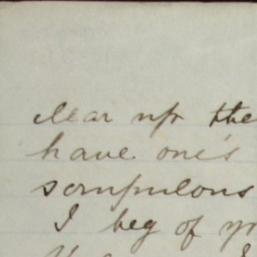 clear up the
have one's
scrupulous
I beg of yo